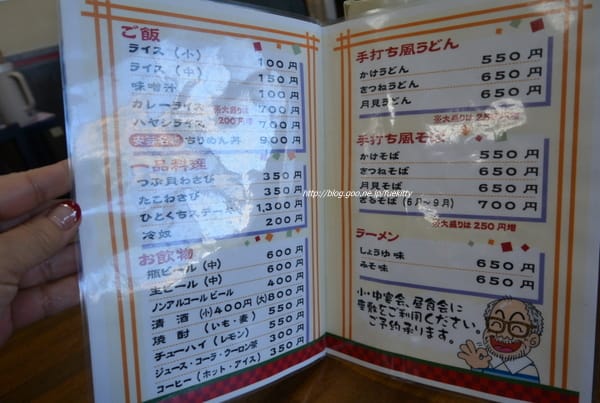 ご飯
ライス（小） 100円
ライス（中） 150円
味噌汁 100円
カレーライス 700円
※大盛りは200円増
ハヤシライス 700円
ちりめん丼 900円
一品料理
つぶ貝わさび 350円
たこわさび 350円
ひとくちステーキ 1,300円
冷奴 200円
お飲物
瓶ビール（中） 600円
生ビール（中） 600円
ノンアルコールビール 400円
清酒（小）400円（大）800円
焼酎（いも・麦） 550円
チューハイ（レモン） 300円
ジュース・コーラ・ウーロン茶 300円
コーヒー（ホット・アイス） 350円
手打ち風うどん
かけうどん 550円
きつねうどん 650円
月見うどん 650円
※大盛りは250円増
手打ち風そば
かけそば 550円
きつねそば 650円
月見そば 650円
ざるそば（6月～9月） 700円
※大盛りは250円増
ラーメン
しょうゆ味 650円
みそ味 650円
小・中宴会、昼食会に
座敷をご利用ください。
ご予約承ります。
http://blog.goo.ne.jp/fuekitty